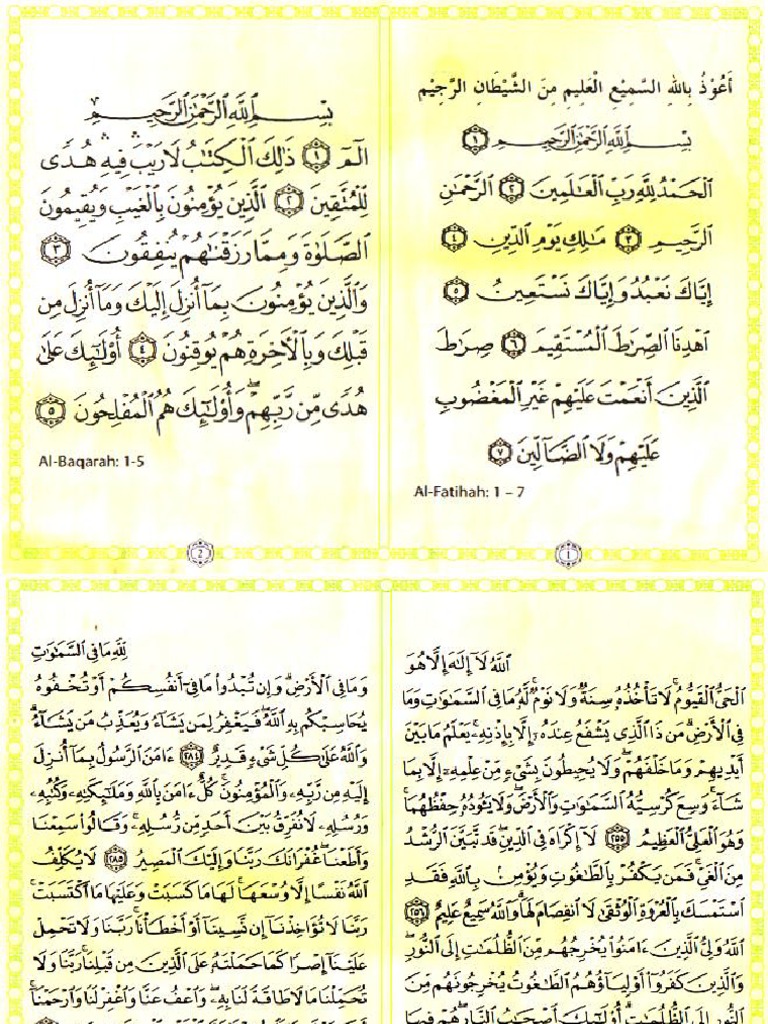 اَعُوْذُ بِاللهِ السَّمِيْعِ الْعَلِيْمِ مِنَ الشَّيْطَانِ الرَّجِيْمِ
بِسْمِ ٱللَّهِ ٱلرَّحْمَٰنِ ٱلرَّحِيمِ ١
ٱلْحَمْدُ لِلَّهِ رَبِّ ٱلْعَٰلَمِينَ ٢ ٱلرَّحْمَٰنِ
ٱلرَّحِيمِ ٣ مَٰلِكِ يَوْمِ ٱلدِّينِ ٤
إِيَّاكَ نَعْبُدُ وَإِيَّاكَ نَسْتَعِينُ ٥
ٱهْدِنَا ٱلصِّرَٰطَ ٱلْمُسْتَقِيمَ ٦ صِرَٰطَ
ٱلَّذِينَ أَنْعَمْتَ عَلَيْهِمْ غَيْرِ ٱلْمَغْضُوبِ
عَلَيْهِمْ وَلَا ٱلضَّآلِّينَ ٧
Al-Fatihah: 1 – 7
1
بِسْمِ ٱللَّهِ ٱلرَّحْمَٰنِ ٱلرَّحِيمِ
الٓمٓ ١ ذَٰلِكَ ٱلْكِتَٰبُ لَا رَيْبَ ۛ فِيهِ ۛ هُدًى
لِّلْمُتَّقِينَ ٢ ٱلَّذِينَ يُؤْمِنُونَ بِٱلْغَيْبِ وَيُقِيمُونَ
ٱلصَّلَوٰةَ وَمِمَّا رَزَقْنَٰهُمْ يُنفِقُونَ ٣
وَٱلَّذِينَ يُؤْمِنُونَ بِمَآ أُنزِلَ إِلَيْكَ وَمَآ أُنزِلَ مِن
قَبْلِكَ وَبِٱلْءَاخِرَةِ هُمْ يُوقِنُونَ ٤ أُو۟لَٰٓئِكَ عَلَىٰ
هُدًى مِّن رَّبِّهِمْ ۖ وَأُو۟لَٰٓئِكَ هُمُ ٱلْمُفْلِحُونَ ٥
Al-Baqarah: 1-5
2
ٱللَّهُ لَآ إِلَٰهَ إِلَّا هُوَ
ٱلْحَىُّ ٱلْقَيُّومُ ۚ لَا تَأْخُذُهُۥ سِنَةٌ وَلَا نَوْمٌ ۚ لَّهُۥ مَا فِى ٱلسَّمَٰوَٰتِ وَمَا
فِى ٱلْأَرْضِ ۗ مَن ذَا ٱلَّذِى يَشْفَعُ عِندَهُۥٓ إِلَّا بِإِذْنِهِۦ ۚ يَعْلَمُ مَا بَيْنَ
أَيْدِيهِمْ وَمَا خَلْفَهُمْ ۖ وَلَا يُحِيطُونَ بِشَىْءٍ مِّنْ عِلْمِهِۦٓ إِلَّا بِمَا
شَآءَ ۚ وَسِعَ كُرْسِيُّهُ ٱلسَّمَٰوَٰتِ وَٱلْأَرْضَ ۖ وَلَا يَـُٔودُهُۥ حِفْظُهُمَا ۚ
وَهُوَ ٱلْعَلِىُّ ٱلْعَظِيمُ ٢٥٥ لَآ إِكْرَاهَ فِى ٱلدِّينِ ۖ قَد تَّبَيَّنَ ٱلرُّشْدُ
مِنَ ٱلْغَىِّ ۚ فَمَن يَكْفُرْ بِٱلطَّٰغُوتِ وَيُؤْمِنۢ بِٱللَّهِ فَقَدِ
ٱسْتَمْسَكَ بِٱلْعُرْوَةِ ٱلْوُثْقَىٰ لَا ٱنفِصَامَ لَهَا ۗ وَٱللَّهُ سَمِيعٌ عَلِيمٌ ٢٥٦
ٱللَّهُ وَلِىُّ ٱلَّذِينَ ءَامَنُوا۟ يُخْرِجُهُم مِّنَ ٱلظُّلُمَٰتِ إِلَى ٱلنُّورِ ۖ
وَٱلَّذِينَ كَفَرُوٓا۟ أَوْلِيَآؤُهُمُ ٱلطَّٰغُوتُ يُخْرِجُونَهُم مِّنَ
ٱلنُّورِ إِلَى ٱلظُّلُمَٰتِ ۗ أُو۟لَٰٓئِكَ أَصْحَٰبُ ٱلنَّارِ ۖ هُمْ فِيهَا
لِّلَّهِ مَا فِى ٱلسَّمَٰوَٰتِ
وَمَا فِى ٱلْأَرْضِ ۗ وَإِن تُبْدُوا۟ مَا فِىٓ أَنفُسِكُمْ أَوْ تُخْفُوهُ
يُحَاسِبْكُم بِهِ ٱللَّهُ ۖ فَيَغْفِرُ لِمَن يَشَآءُ وَيُعَذِّبُ مَن يَشَآءُ ۗ
وَٱللَّهُ عَلَىٰ كُلِّ شَىْءٍ قَدِيرٌ ٢٨٤ ءَامَنَ ٱلرَّسُولُ بِمَآ أُنزِلَ
إِلَيْهِ مِن رَّبِّهِۦ وَٱلْمُؤْمِنُونَ ۚ كُلٌّ ءَامَنَ بِٱللَّهِ وَمَلَٰٓئِكَتِهِۦ وَكُتُبِهِۦ
وَرُسُلِهِۦ لَا نُفَرِّقُ بَيْنَ أَحَدٍ مِّن رُّسُلِهِۦ ۚ وَقَالُوا۟ سَمِعْنَا
وَأَطَعْنَا ۖ غُفْرَانَكَ رَبَّنَا وَإِلَيْكَ ٱلْمَصِيرُ ٢٨٥ لَا يُكَلِّفُ
ٱللَّهُ نَفْسًا إِلَّا وُسْعَهَا ۚ لَهَا مَا كَسَبَتْ وَعَلَيْهَا مَا ٱكْتَسَبَتْ ۗ
رَبَّنَا لَا تُؤَاخِذْنَآ إِن نَّسِينَآ أَوْ أَخْطَأْنَا ۚ رَبَّنَا وَلَا تَحْمِلْ
عَلَيْنَآ إِصْرًا كَمَا حَمَلْتَهُۥ عَلَى ٱلَّذِينَ مِن قَبْلِنَا ۚ رَبَّنَا وَلَا
تُحَمِّلْنَا مَا لَا طَاقَةَ لَنَا بِهِۦ ۖ وَٱعْفُ عَنَّا وَٱغْفِرْ لَنَا وَٱرْحَمْنَآ ۚ